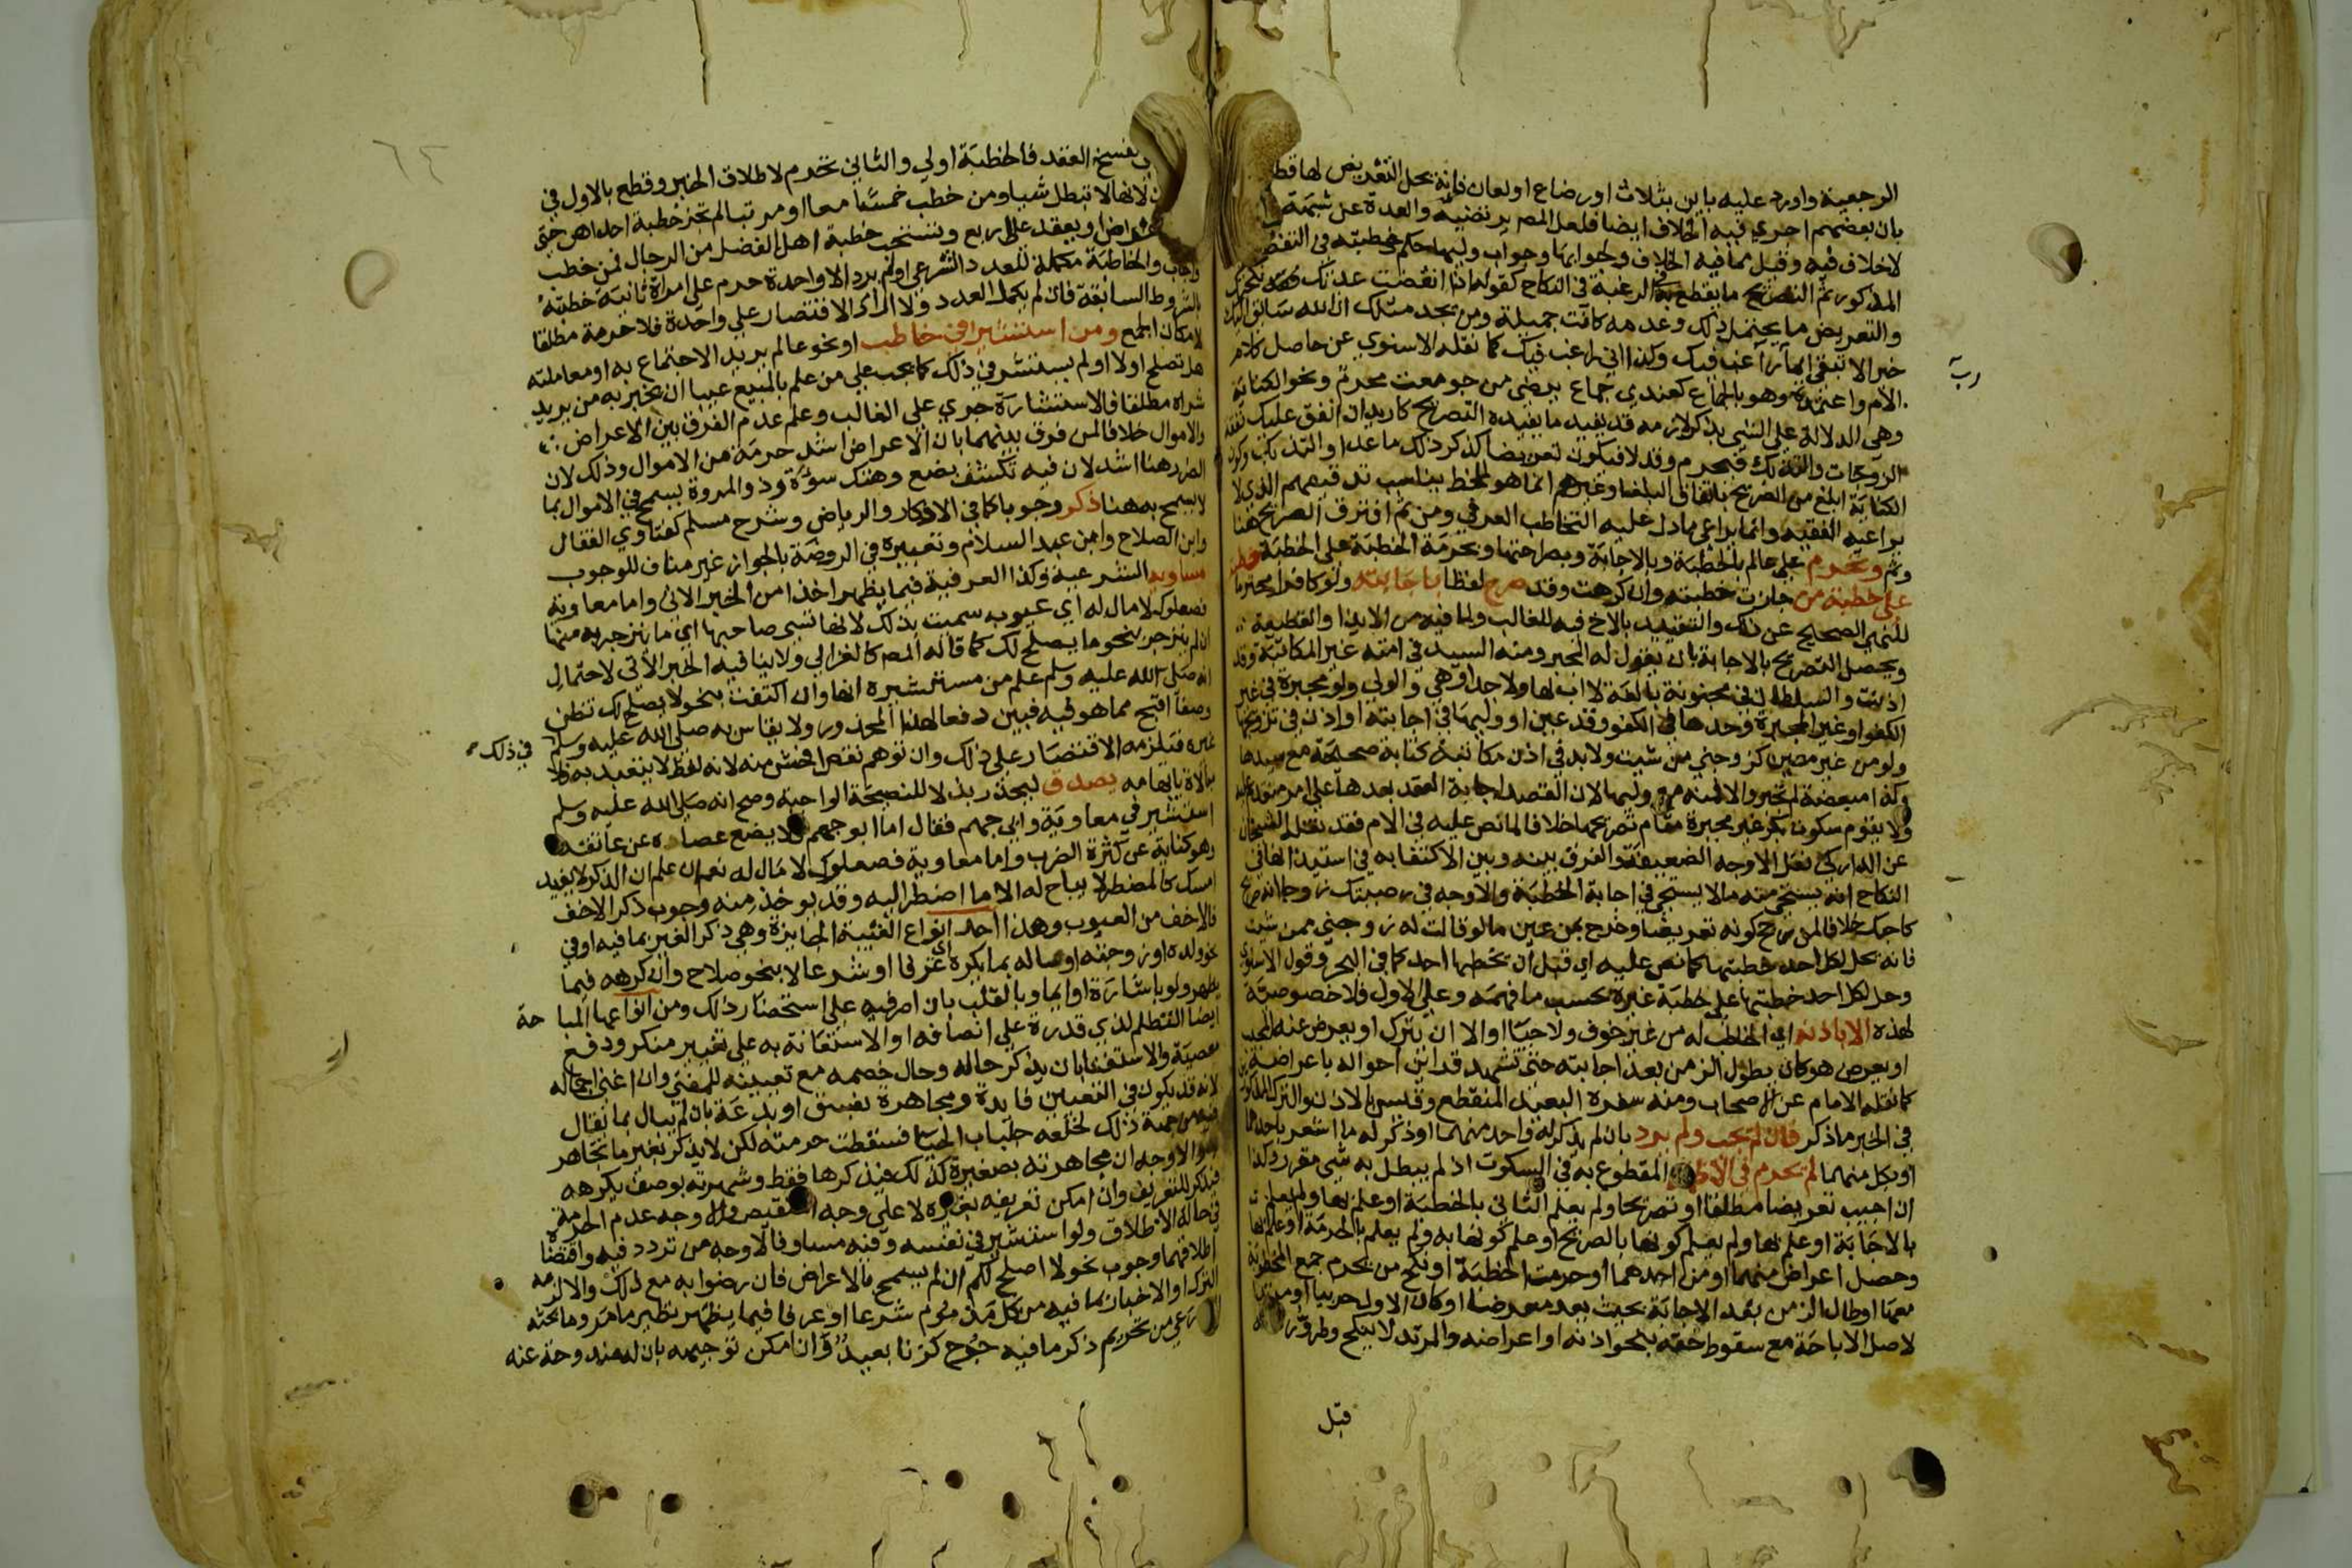 الرجعية واورد عليه باين بثلاث او رضاع او لعان فانه يحل التعريض لها قطعا
بان بعضهم اجري فيه الخلاف ايضا فلعل المص يرتضيه والعدة عن شبهة
لا خلاف فيه وقيل مما فيه الخلاف ولجوابها وجواب وليها حكم خطبته في التفصيل
المذكور ثم التصريح ما يقطع بالرغبة في النكاح كقوله اذا انقضت عدتك نكحتك
والتعريض ما يحتمل ذلك وعدمه كانت جميلة ومن يجد مثلك ان الله سايق اليك
خيرا لا تبقي ايما رب راغب فيك وكذا اني راغب فيك كما نقله الاسنوي عن حاصل كلام
الام واعتمده ونحوه بالجماع كعندي جماع يرضي من جومعت محرم ونحو الكناية
وهي الدلالة علي الشي بذكر لازمه قد يفيد ما يفيده التصريح كاريد ان انفق عليك نفقة
الزوجات والتذ بك فيحرم وقد لا فيكون تعريضا كذكر ذلك ما عدا والتذ بك وكون
الكناية ابلغ من الصريح باتفاق البلغا وغيرهم انما هو لملحظ يناسب تدقيقهم الذي لا
يراعيه الفقيه وانما يراعي ما دل عليه التخاطب العرفي ومن ثم افترق الصريح هنا
وثم وتحرم علي عالم بالخطبة وبالاجابة وبصراحتها وبحرمة الخطبة علي الخطبة خطبة
علي خطبة من جازت خطبته وان كرهت وقد صرح لفظا باجابته ولو كافرا محترما
للنهي الصحيح عن ذلك والتقييد بالاخ فيه للغالب ولما فيه من الايذا والقطيعة
ويحصل التصريح بالاجابة بان يقول له المجبر ومنه السيد في امته غير المكاتبة وقد
اذنت والسلطان في مجنونة بالغة لا اب لها ولا جد او هي والولي ولو مجبرة في غير
الكفو او غير المجبرة وحدها في الكفو وقد عين او وليها في اجابته او اذن في تزويجها
ولو من غير معين كزوجني من شيت ولا بد في اذن مكاتبة كتابة صحيحة مع سيدها
وكذا مبعضة لم تجبر والا فمنه مع وليها لان القصد اجابة العقد بعدها علي امر متقدم عليه
ولا يقوم سكوت بكر غير مجبرة مقام تصريحها خلافا لما نص عليه في الام فقد نقله الشيخان
عن الداركي نقل الاوجه الضعيفة والفرق بينه وبين الاكتفا به في استيذانها في
النكاح انه يستحي منه ما لا يستحي في اجابة الخطبة والاوجه في رضيتك زوجا انه صريح
كاجبتك خلافا لمن رجح كونه تعريضا وخرج بمن عين ما لو قالت له زوجني ممن شيت
فانه يحل لكل احد خطبتها كما نص عليه اي قبل ان يخطبها احد كما في البحر وقول الاسنوي
وحل لكل احد خطبتها علي خطبة غيره بحسب ما فهمه وعلي الاول فلا خصوصية
لهذه الا باذنه اي الخاطب له من غير خوف ولا حيا او الا ان يترك او يعرض عنه المجيب
او يعرض هو كان يطول الزمن بعد اجابته حتي تشهد قراين احواله باعراضه
كما نقله الامام عن الاصحاب ومنه سفره البعيد المنقطع وقيس بالاذن والترك المذكور
في الخبر ما ذكر فان لم يجب ولم يرد بان لم يذكر له واحد منهما او ذكر له ما اشعر باحدهما
او بكل منهما لم تحرم في الاظهر المقطوع به في السكوت اذ لم يبطل به شي مقرر وكذا
ان اجيب تعريضا مطلقا او تصريحا ولم يعلم الثاني بالخطبة او علم بها ولم يعلم
بالاجابة او علم بها ولم يعلم كونها بالصريح او علم كونها به ولم يعلم بالحرمة او علم بها
وحصل اعراض منهما او من احدهما او حرمت الخطبة او نكح من يحرم جمع المخطوبة
معها او طال الزمن بعد الاجابة بحيث يعد معرضا او كان الاول حربيا او مرتدا
لاصل الاباحة مع سقوط حقه بنحو اذنه او اعراضه والمرتد لا ينكح وطروّ ردته
قبل
يفسخ العقد فالخطبة اولي والثاني تحرم لاطلاق الخبر وقطع بالاول في
لانها لا تبطل شيا ومن خطب خمسا معا او مرتبا لم تجز خطبة احداهن حتي
اعراض او يعقد علي اربع وتستحب خطبة اهل الفضل من الرجال فمن خطب
واجاب والخاطبة مكملة للعدد الشرعي او لم يرد الا واحدة حرم علي امراة ثانية خطبته
بالشروط السابقة فان لم يكمل العدد ولا اراد الاقتصار علي واحدة فلا حرمة مطلقا
لامكان الجمع ومن استشير في خاطب او نحو عالم يريد الاجتماع به او معاملته
هل تصلح اولا او لم يستشر في ذلك كما يجب علي من علم بالمبيع عيبا ان يخبر به من يريد
شراه مطلقا فالاستشارة جري علي الغالب وعلم عدم الفرق بين الاعراض
والاموال خلافا لمن فرق بينهما بان الاعراض اشد حرمة من الاموال وذلك لان
الضرر هنا اشد لان فيه تكشف بضع وهتك سوءة وذو المروة يسمح في الاموال بما
لا يسمح به هنا ذكر وجوبا كما في الاذكار والرياض وشرح مسلم كفتاوي القفال
وابن الصلاح وابن عبد السلام وتعبيره في الروضة بالجواز غير مناف للوجوب
مساويه الشرعية وكذا العرفية فيما يظهر اخذا من الخبر الاتي واما معاوية
فصعلوك لا مال له اي عيوب سميت بذلك لانها تسي صاحبها اي ما ينزجر به منها
ان لم ينزجر بنحو ما يصلح لك كما قاله المص كالغزالي ولا ينافيه الخبر الاتي لاحتمال
انه صلي الله عليه وسلم علم من مستشيره انها وان اكتفت بنحو لا يصلح لك تظن
وصفا اقبح مما هو فيه فبين دفعا لهذا المحذور ولا يقاس به صلي الله عليه وسلم في ذلك
غيره فتلزمه الاقتصار علي ذلك وان توهم نقص افحش منه لانه لفظ لا يتقيد به ولا
مبالاة بايهامه بصدق ليحذر بذلا للنصيحة الواجبة وصح انه صلي الله عليه وسلم
استشير في معاوية وابي جهم فقال اما ابو جهم فلا يضع عصاه عن عاتقه
وهو كناية عن كثرة الضرب واما معاوية فصعلوك لا مال له نعم ان علم ان الذكر لا يفيد
امسك كالمضطر لا يباح له الا ما اضطر اليه وقد يوخذ منه وجوب ذكر الاخف
فالاخف من العيوب وهذا احد انواع الغيبة الجايزة وهي ذكر الغير بما فيه او في
نحو ولده او زوجته او ماله بما يكره اي عرفا او شرعا لا بنحو صلاح وان كرهه فيما
يظهر ولو باشارة او ايما وبالقلب بان اصر فيه علي استحضار ذلك ومن انواعها المباحة
ايضا التظلم لذي قدرة علي انصافه او الاستعانة به علي تغيير منكر ودفع
معصية والاستفتا بان يذكر حاله وحال خصمه مع تعيينه للمفتي وان اغني اجماله
لانه قد يكون في التعيين فايدة ومجاهرة بفسق او بدعة بان لم يبال بما يقال
فيه من جهة ذلك لخلعه جلباب الحيا فسقطت حرمته لكن لا يذكر بغير ما تجاهر
به والاوجه ان مجاهرته بصغيرة كذلك فيذكرها فقط وشهرته بوصف يكرهه
فيذكر للتعريف وان امكن تعريفه بغيره لا علي وجه التنقيص والاوجه عدم الحرمة
في حالة الاطلاق ولو استشير في نفسه وفيه مساو فالاوجه من تردد فيه واقتضا
اطلاقهما وجوب نحو لا اصلح لكم ان لم يسمح بالاعراض فان رضوا به مع ذلك والا لزمه
الترك او الاخبار بما فيه من كل مذموم شرعا او عرفا فيما يظهر نظير ما مر وما بحثه
الاذرعي من تحريم ذكر ما فيه جرح كزنا بعيد وان امكن توجيهه بان له مندوحة عنه